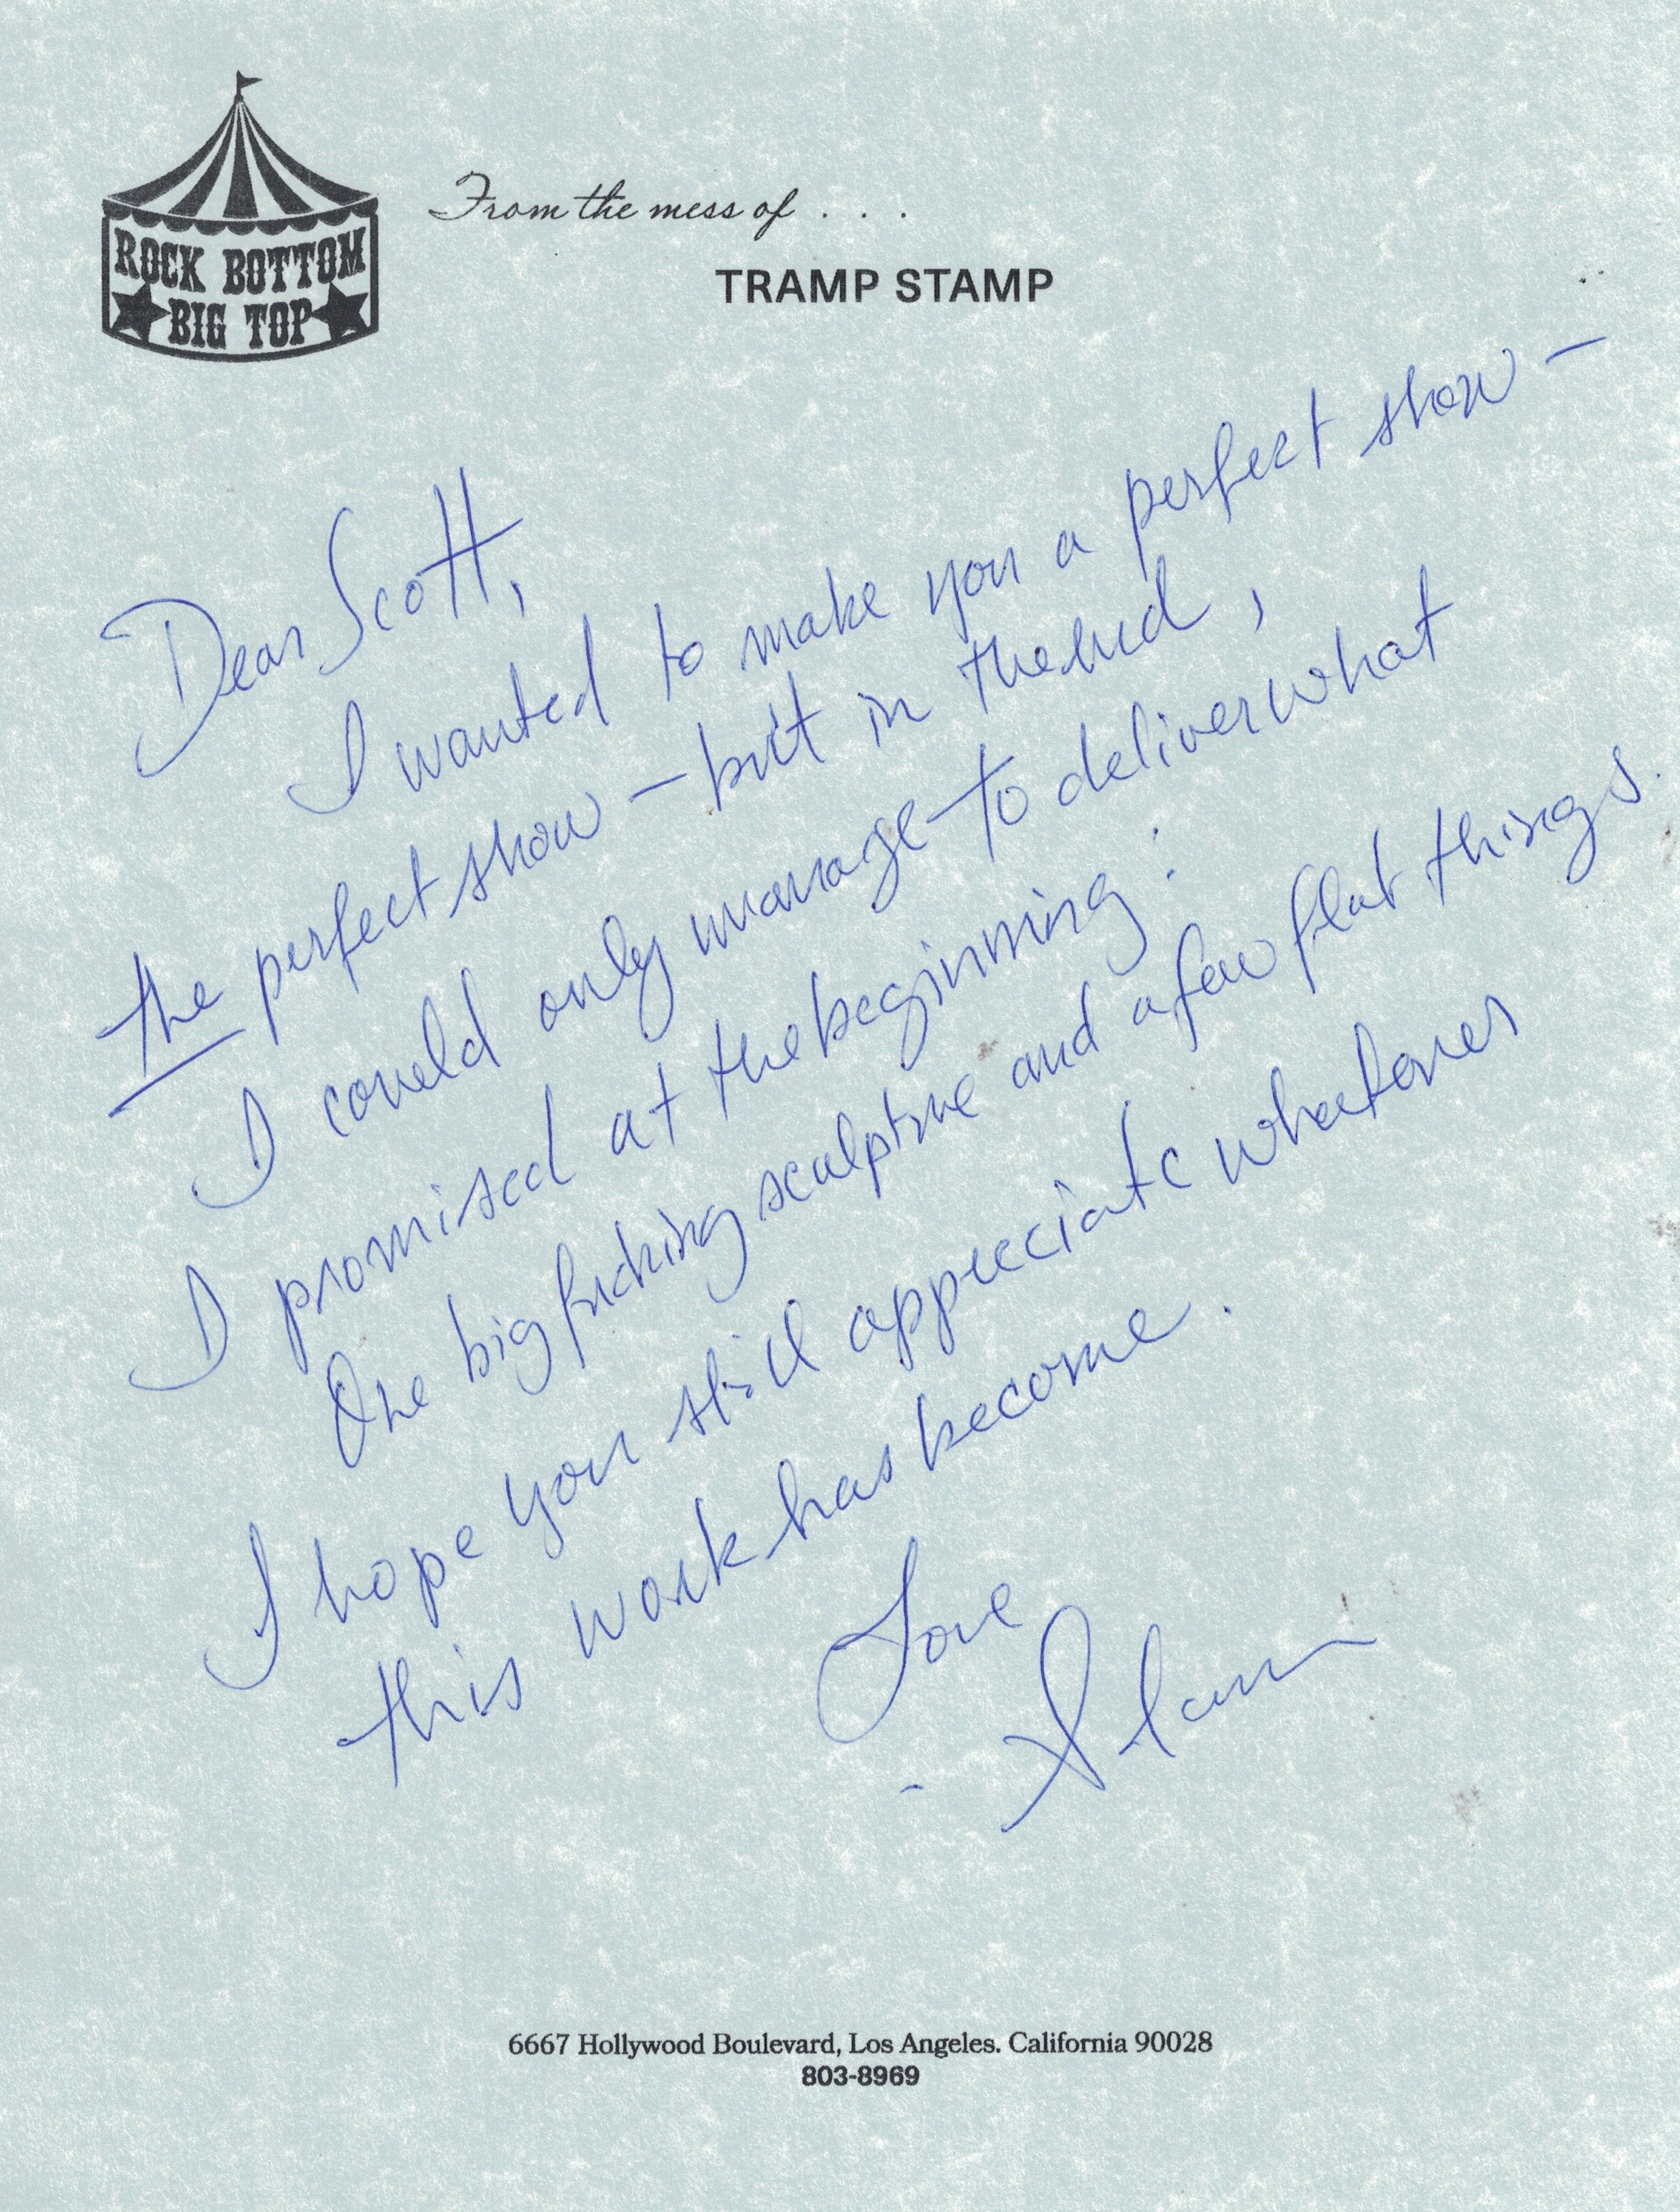 ROCK BOTTOM
BIG TOP
From the mess of . . .
TRAMP STAMP
Dear Scott,
I wanted to make you a perfect show –
the perfect show – but in the end,
I could only manage to deliver what
I promised at the beginning:
One big fucking sculpture and a few flat things.
I hope you still appreciate whatever
this work has become.
Love
6667 Hollywood Boulevard, Los Angeles. California 90028
803-8969